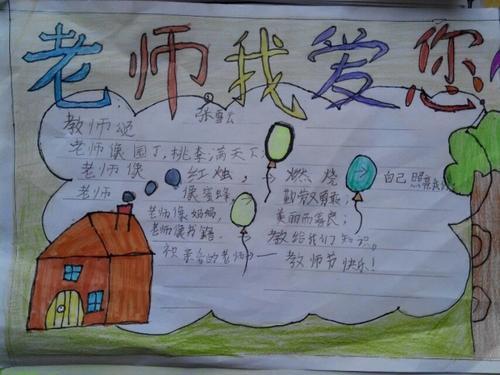 老师我爱您
教师颂
张雪云
老师像园丁，桃李满天下；
老师像红烛，燃烧自己照亮我们；
老师像蜜蜂，勤劳勇敢；
老师像妈妈，美丽而善良；
老师像书籍，教给我们知识。
祝亲爱的老师——教师节快乐！